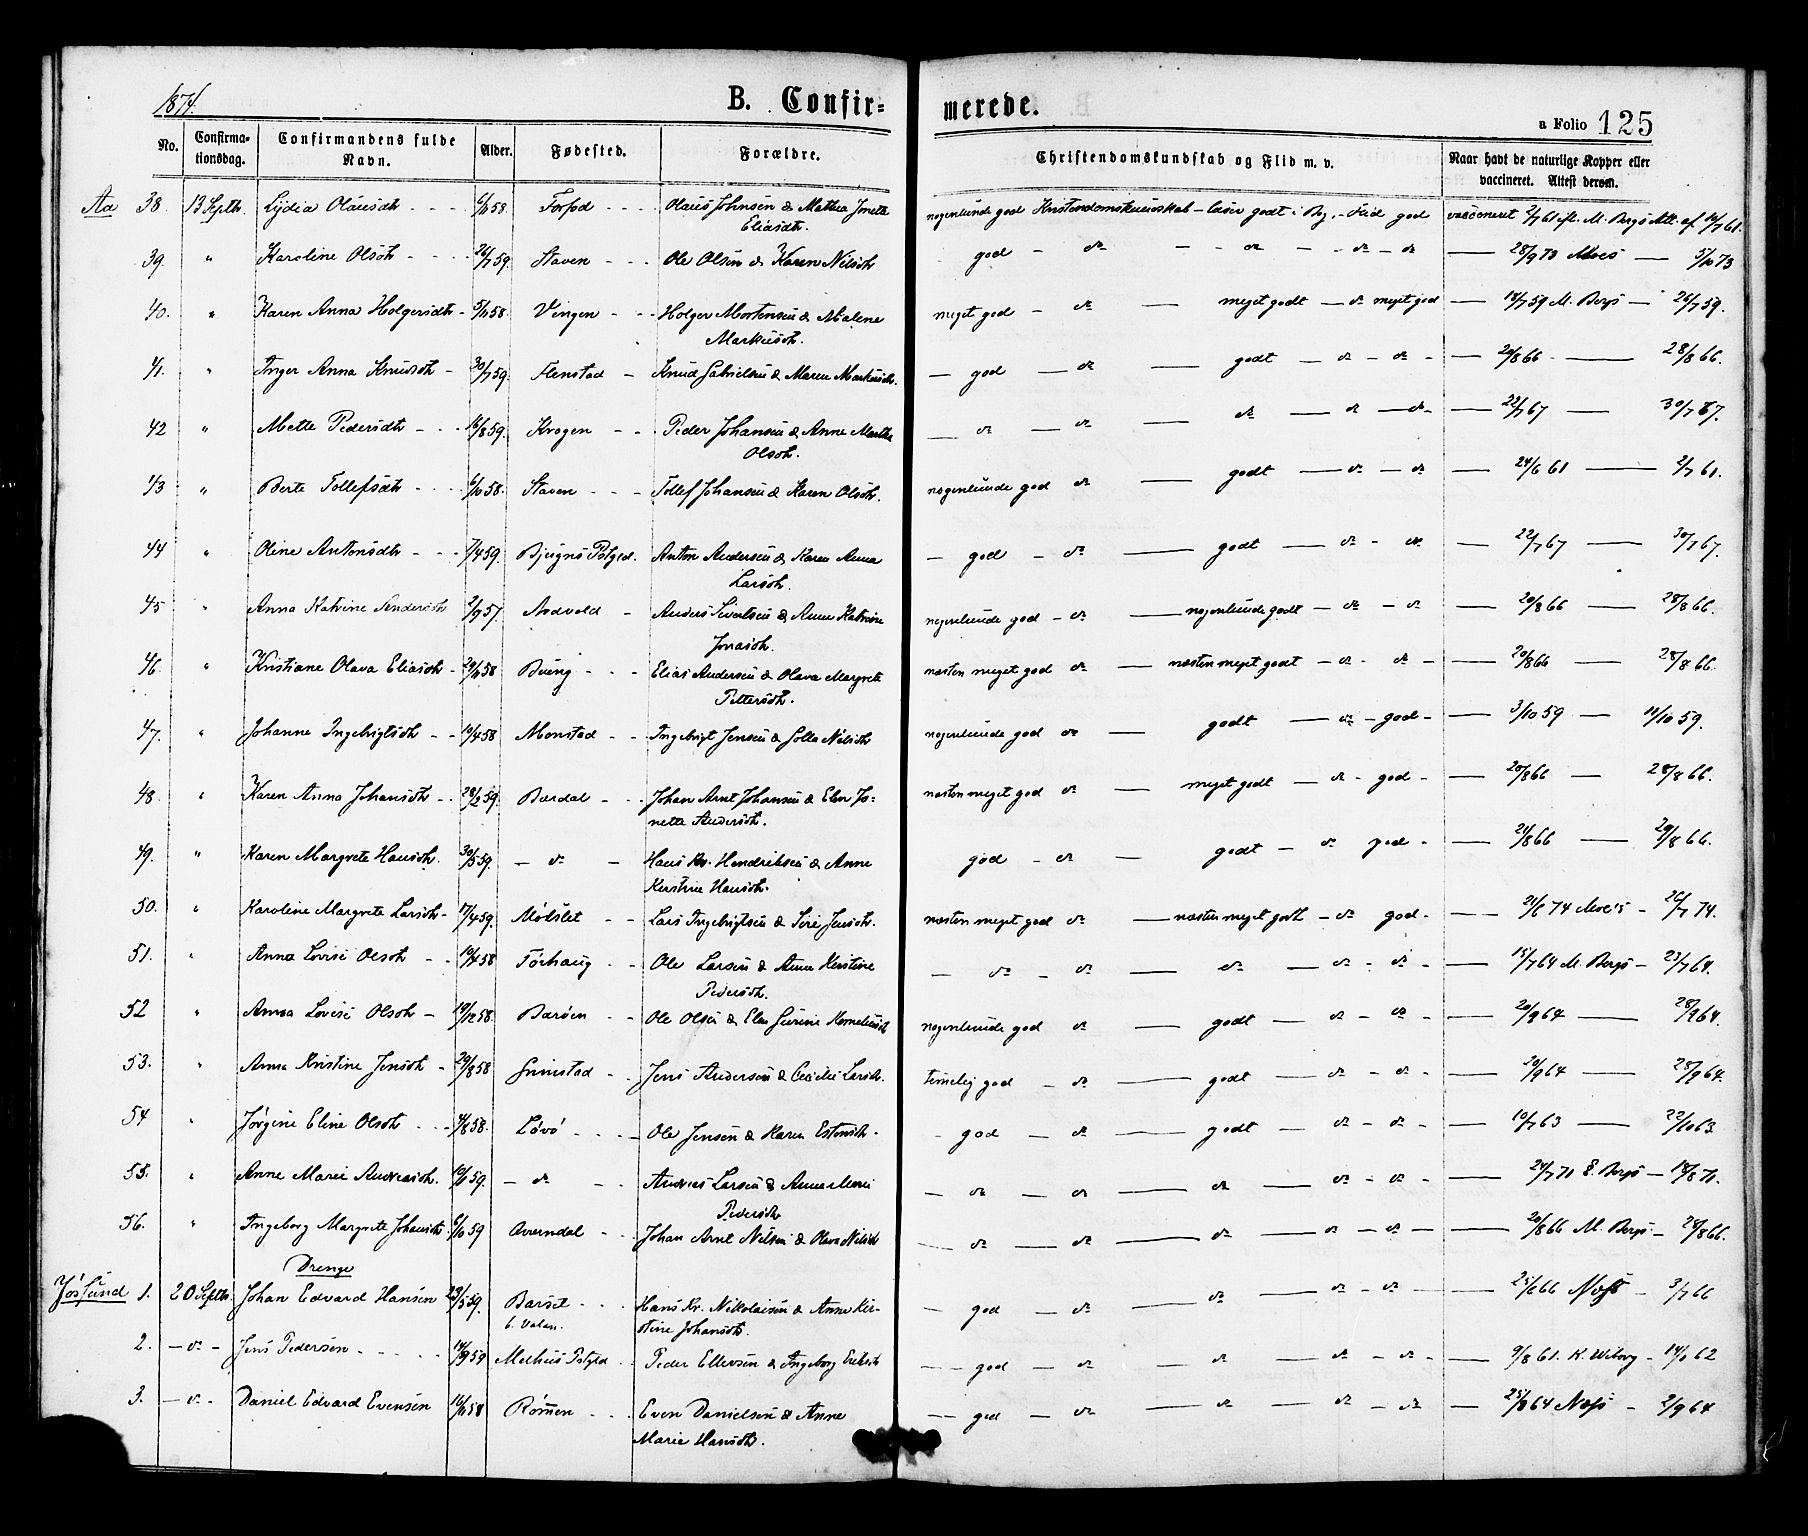 1874.
B. Confir-
merede.
a Folio 125
No. Confirma-tionsdag. Confirmandens fulde Navn. Alder. Fødested. Forældre. Christendomskundskab og Flid m. v. Naar havt de naturlige Kopper eller vaccineret. Attest derom.
Aa 38. 13 Septb. Lydia Olausdtr. 58. Forfod Olaus Johnsen & Mathea Jonetta nogenlunde god Kristendomskundskab - læser godt i Bog, - Flid god vaccineret 2/7 61 ifl. M. Bergs Att. af 61.
Eliasdtr.
39. " Karoline Olsdtr. 26/7 59. Staven Ole Olsen & Karen Nilsdtr god - do - - do - - do - do 28/9 73 Moes 5/10 73
40. " Karen Anna Holgersdtr 58. Vingen Holger Mortensen & Malene meget god - do - meget godt - do meget god 18/7 59 M. Bergs 26/7 59.
Markusdtr.
41. " Inger Anna Knudsdtr 30/7 59. Flenstad Knud Gabrielsen & Maren Markusdtr. - god - do - godt - do - do 20/8 66 28/8 66.
42 " Mette Pedersdtr 16/8 59. Krogen Peder Johansen & Anne Martha - do - do - do - do - do 22/7 67 30/7 67.
Olsdtr.
43 " Berte Tollefsdtr 6/10 58. Staven Tollef Johansen & Karen Olsdtr. nogenlunde god do - godt - do - do 24/6 61 2/7 61.
44 " Oline Antonsdtr 7/4 59. Bjugns Pstgjd. Anton Andersen & Karen Anna - god - do - godt - do - do 22/7 67 30/7 67.
Larsdtr.
45 " Anna Katrine Sendersdtr 2/9 57. Andvold Anders Sivertsen & Anne Katrine nogenlunde god - do - nogenlunde godt - do - do 20/8 66 28/8 66.
Jonasdtr.
46. " Kristiane Olava Eliasdtr 58 Bueng Elias Andersen & Olava Margrete næsten meget god do - næsten meget godt - do - do 20/8 66 28/8 66.
Pettersdtr.
47. " Johanne Ingebrigtsdtr 19/4 58 Monstad Ingebrigt Jensen & Golla Nilsdtr nogenlunde god do - godt - do - god 3/10 59 11/10 59.
48. " Karen Anna Johansdtr. 28/2 59. Bærdal Johan Arnt Johansen & Elen Jo- næsten meget god do - meget godt - do - god 20/8 66 28/8 66.
nette Andersdtr.
49. " Karen Margrete Hansdtr. 30/5 59. - do - Hans Kr. Hendriksen & Anne god - do - godt - do god 21/8 66 29/8 66.
Kirstine Hansdtr.
50. " Karoline Margrete Larsdtr. 17/4 59. Mødslet Lars Ingebrigtsen & Seri Jensdtr. næsten meget god do - næsten meget godt - do god 21/6 74 Moe's 26/7 74.
51. " Anna Lovise Olsdtr. 19/4 58 Tørhaug Ole Larsen & Anne Kirstine - do - do - do - do - do 15/7 64 M. Bergs 23/7 64.
Pedersdtr.
52 " Anna Lovise Olsdtr 19/12 58. Barøen Ole Olsen & Elen Gurine Korneliusdtr nogenlunde god do - godt - do - do 20/9 64 28/9 64.
53. " Anna Kristine Jensdtr 29/8 58 Grinstad Jens Andersen & Cecilie Larsdtr. temelig god - do - godt - do - do 20/9 64 28/9 64.
54 " Jørgine Eline Olsdtr 4/8 58. Løvø Ole Jensen & Karen Estensdtr. - god - do - godt - do - do 10/7 63 22/10 63
55. " Anne Marie Andreasdtr. 59. - do - Andreas Larsen & Anne Marie - do - do - do - do - do 24/7 71 E. Bergs 18/8 71.
Pedersdtr
56. " Ingeborg Margrete Johansdtr 6/10 59 Averndal Johan Arnt Nilsen & Olava Nilsdtr - do - do - do - do - do 20/8 66 M. Bergs 28/8 66.
Drenge
Jøssund 1. 20 Septb. Johan Edvard Hansen 23/5 59. Barset Hans Kr. Nikolaisen & Anne Kir- - god - do - do - do - do 25/6 66 Næss 3/7 66
stine Johansdtr.
2. - do - Jens Pedersen 14/9 59 Melhus Pstgjd Peder Ellevsen & Ingeborg Eriksdtr - god - do - do - do - do 9/8 61. K. Wiborg 62
3. - do - Daniel Edvard Evensen 58 Rømen Even Danielsen & Anne - god - do - do - do - do 25/8 64 Næss 2/9 64
Marie Hansdtr.